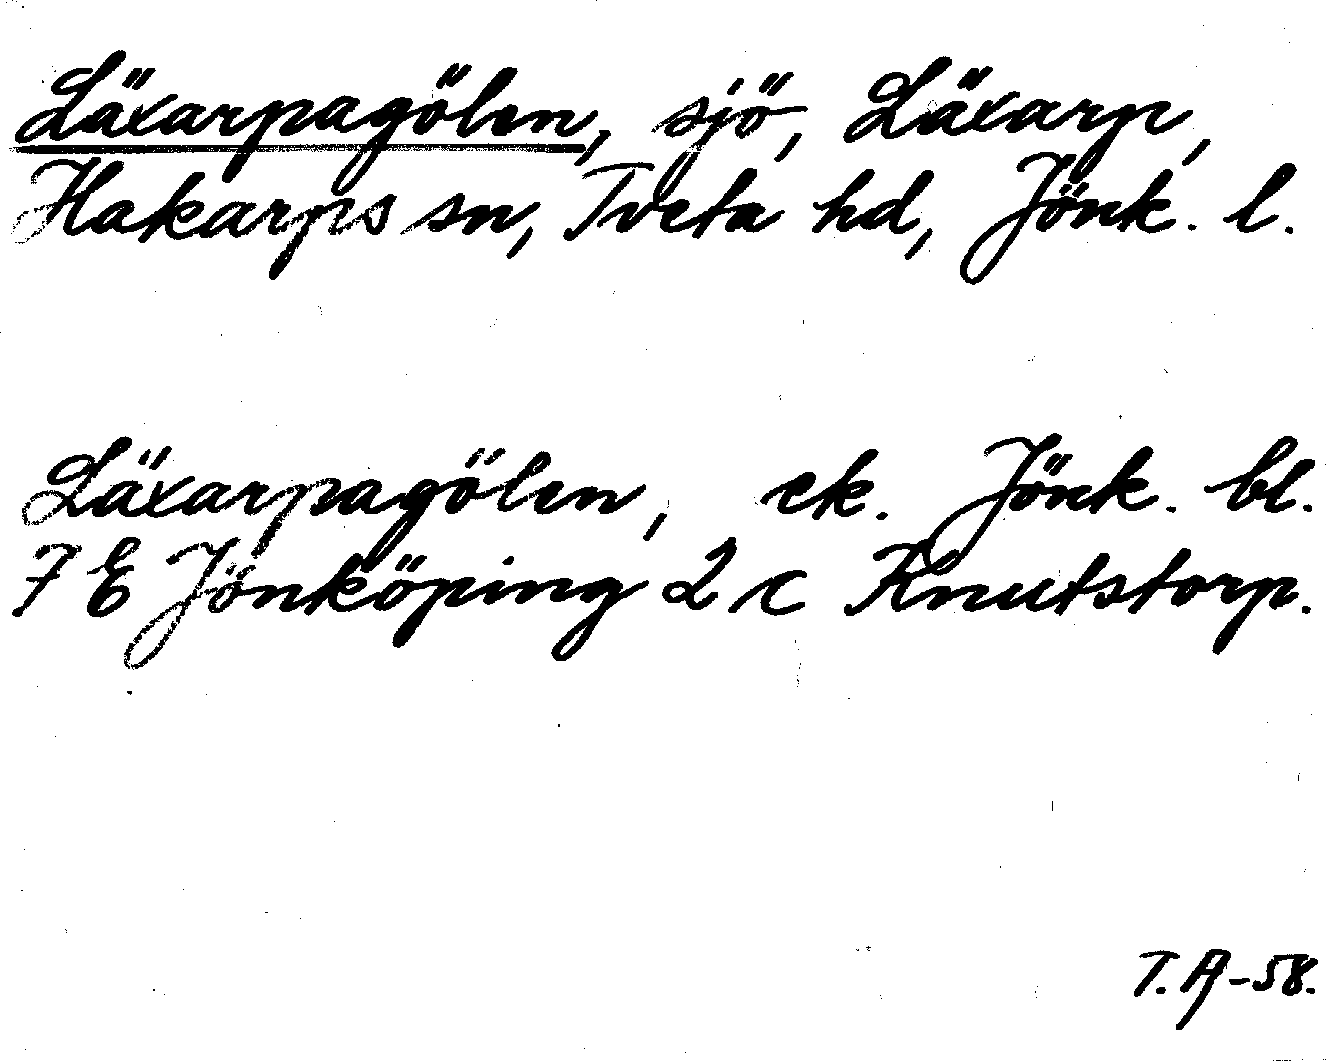 Läxarpagölen, sjö, Läxarp,
Hakarps sn, Tveta hd, Jönk. l.
Läxarpagölen, ek. Jönk. bl.
7 E Jönköping 2 c Knutstorp.
T.A-58.